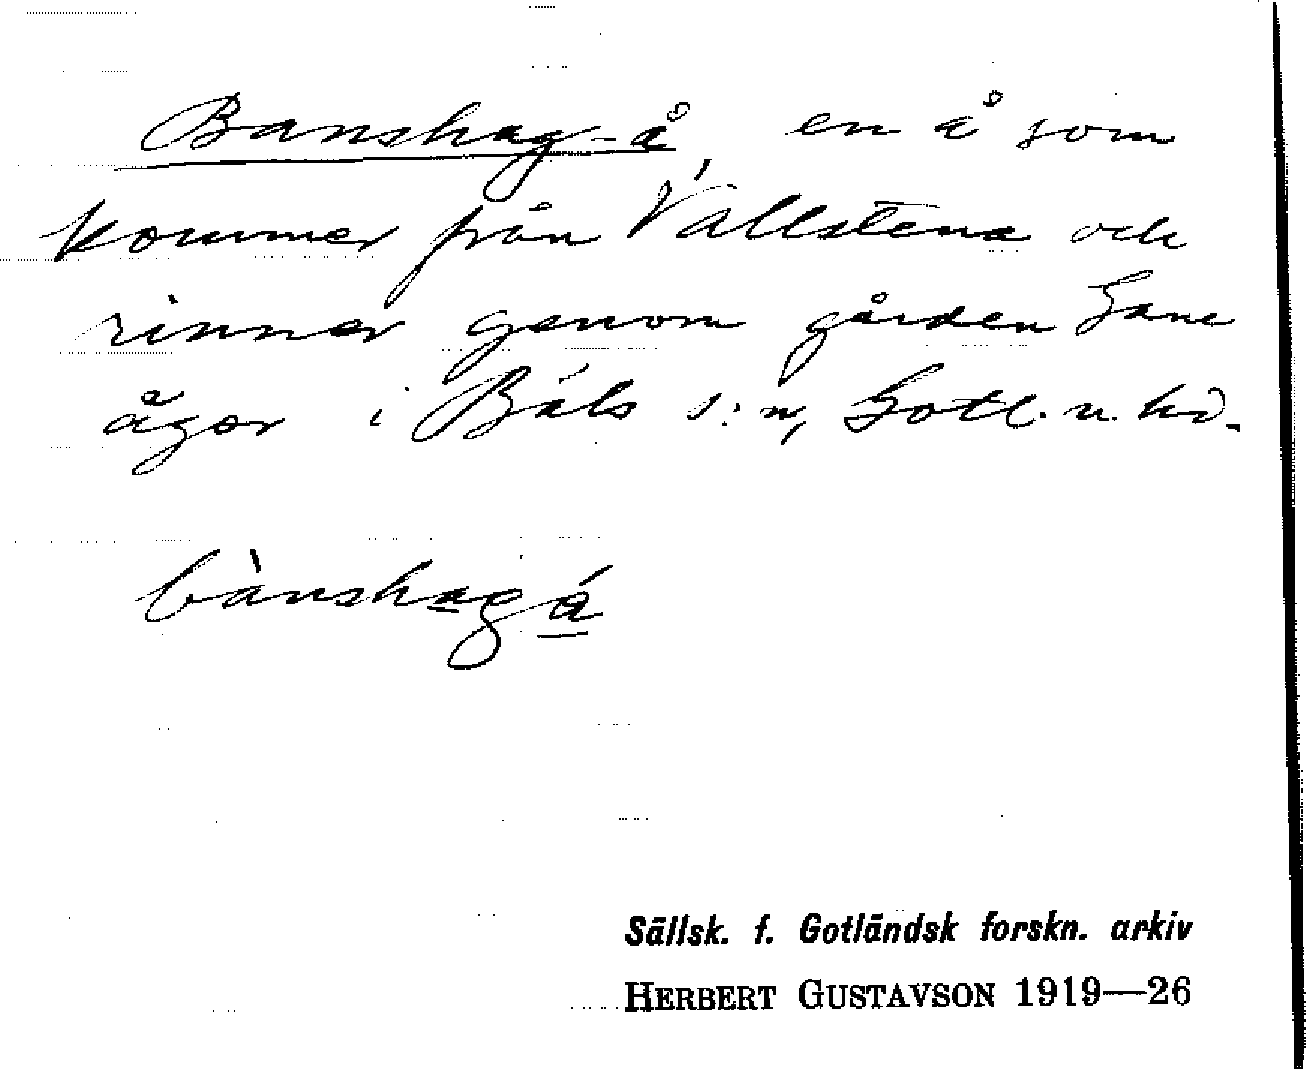 Banshag-å, en å som
kommer från Vallstena och
rinner genom gården Gane
ägor i Bäls s:n, Gotl. n. hd.
bànshagá
Sällsk. f. Gotländsk forskn. arkiv
HERBERT GUSTAVSON 1919—26